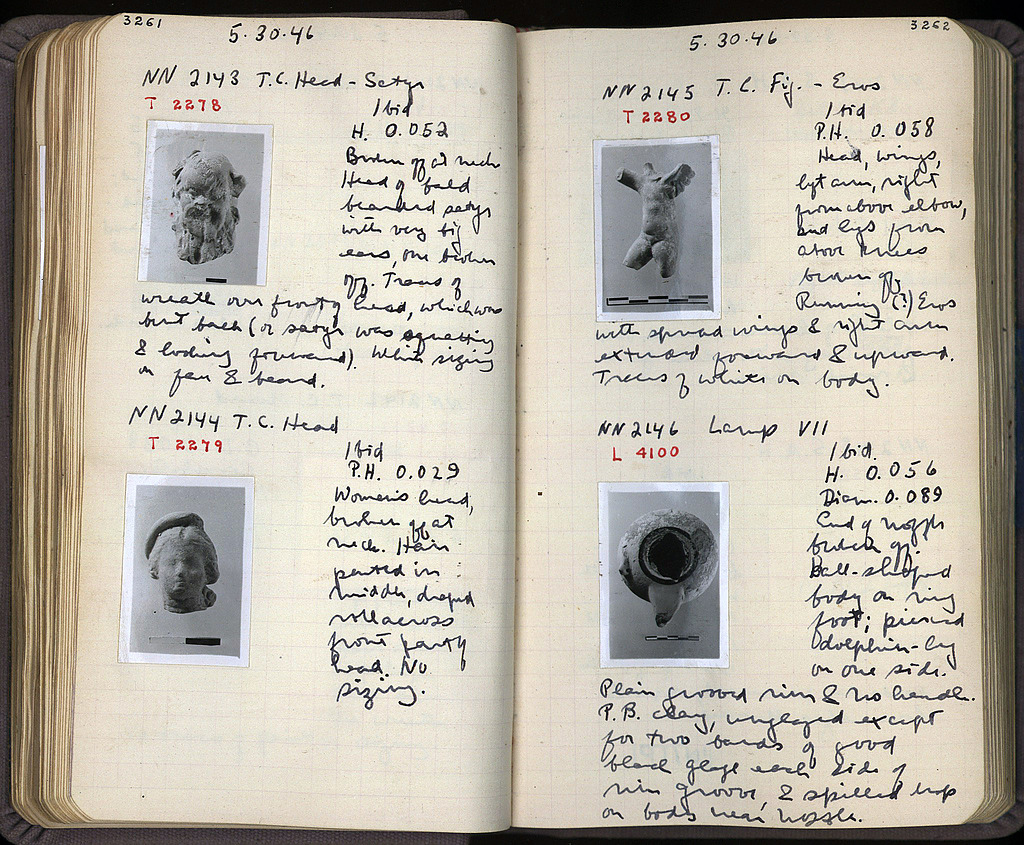 3261
5.30.46
NN 2143 T.C. Head - Satyr
T 2278
Ibid
H. 0.052
Broken off at neck
Head of bald
bearded satyr
with very big
ears, one broken
off. Traces of
wreath over front of head, which was
bent back (or satyr was squatting
& looking forward). White sizing
on face & beard.
NN 2144 T.C. Head
T 2279
Ibid
P.H. 0.029
Woman's head,
broken off at
neck. Hair
parted in
middle, draped
roll across
front part of
head. No
sizing.
3262
5.30.46
NN 2145 T.C. Fig. - Eros
T 2280
Ibid
P.H. 0.058
Head, wings,
left arm, right
from above elbow,
and legs from
above knees
broken off.
Running (?) Eros
with spread wings & right arm
extended forward & upward.
Traces of white on body.
NN 2146 Lamp VII
L 4100
Ibid.
H. 0.056
Diam. 0.089
End of nozzle
broken off.
Ball-shaped
body on ring
foot; pierced
dolphin-lug
on one side.
Plain grooved rim & no handle.
P.B. clay, unglazed except
for two bands of good
black glaze each side of
rim groove, & spilled drop
on body near nozzle.